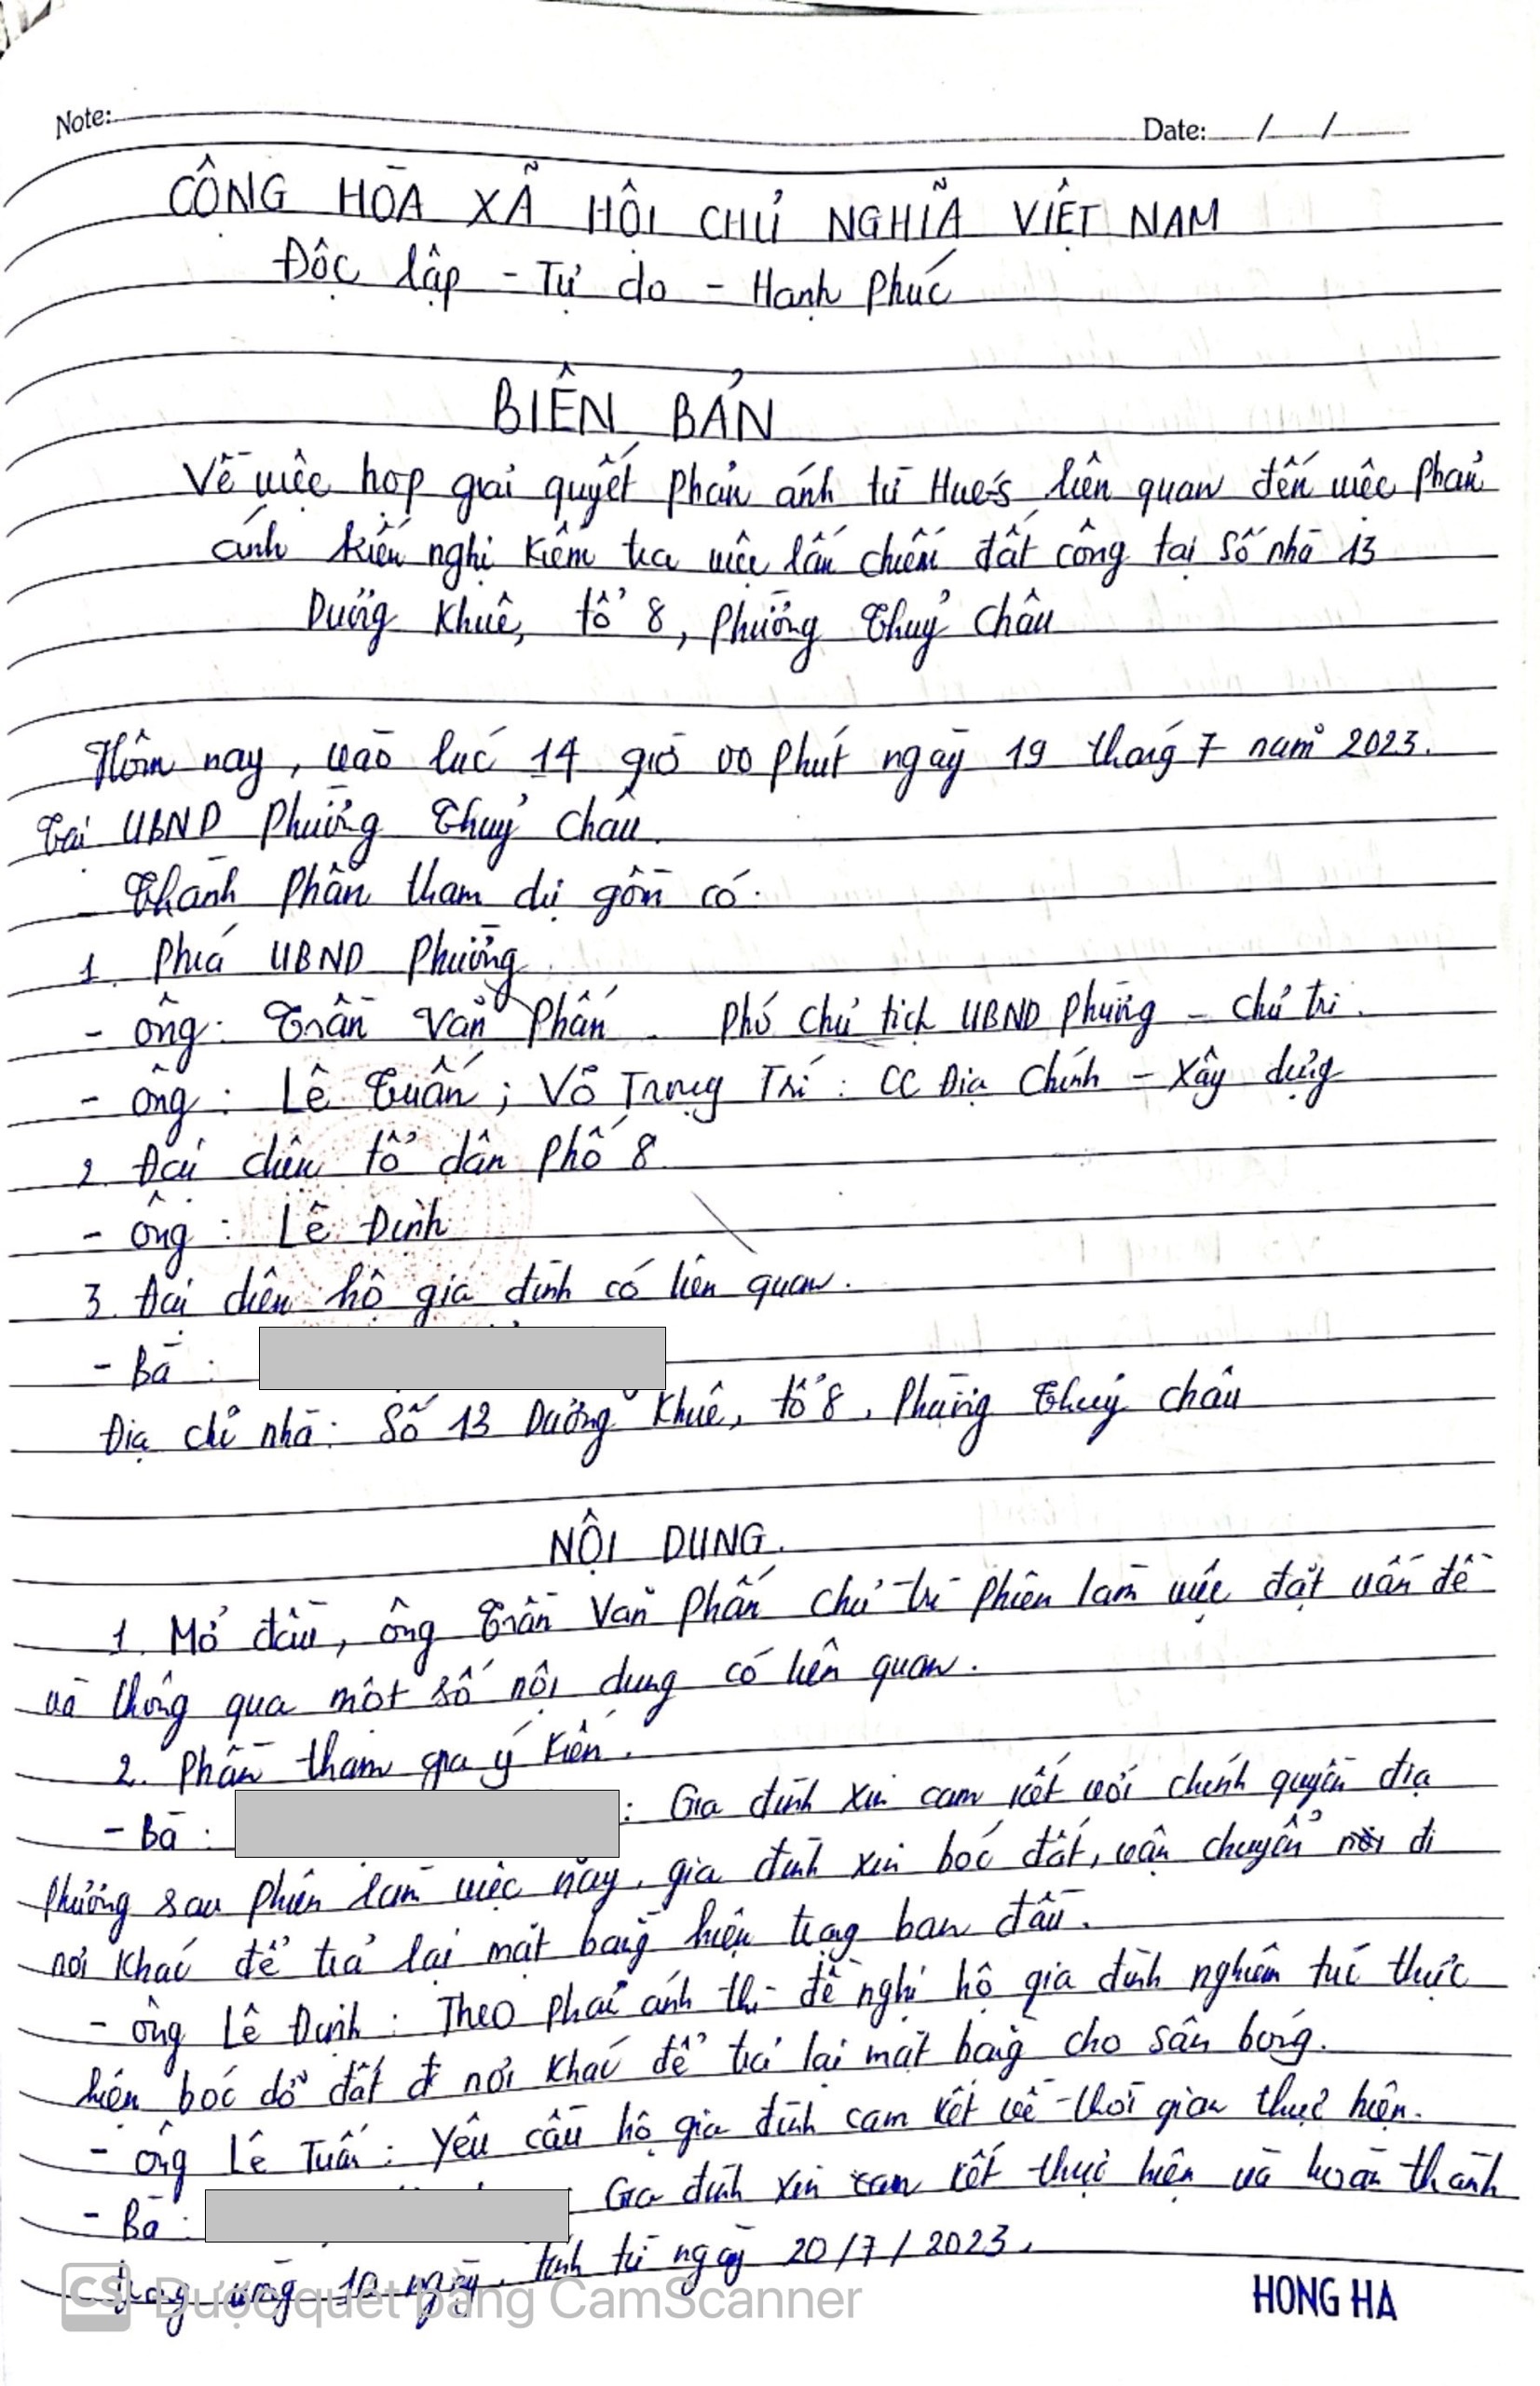 Note: Date: / /
CỘNG HÒA XÃ HỘI CHỦ NGHĨA VIỆT NAM
Độc lập - Tự do - Hạnh Phúc
BIÊN BẢN
Về việc họp giải quyết phản ánh từ Hue-s liên quan đến việc phản
ánh kiến nghị kiểm tra việc lấn chiếm đất công tại số nhà 13
Dương Khuê, tổ 8, phường Thuỷ Châu
Hôm nay, vào lúc 14 giờ 00 phút ngày 19 tháng 7 năm 2023.
Tại UBND Phường Thuỷ Châu.
Thành phần tham dự gồm có:
1. Phía UBND Phường.
- Ông: Trần Văn Phấn. Phó chủ tịch UBND phường - Chủ trì.
- Ông: Lê Tuấn; Võ Trọng Trí: CC Địa Chính - Xây dựng
2. Đại diện tổ dân phố 8
- Ông: Lê Định
3. Đại diện hộ gia đình có liên quan.
- Bà:
Địa chỉ nhà: Số 13 Dương Khuê, tổ 8, Phường Thuỷ Châu
NỘI DUNG.
1. Mở đầu, ông Trần Văn Phấn chủ trì phiên làm việc đặt vấn đề
và thông qua một số nội dung có liên quan.
2. Phần tham gia ý kiến.
- Bà: : Gia đình xin cam kết với chính quyền địa
phương sau phiên làm việc này, gia đình xin bốc đất, vận chuyển đi
nơi khác để trả lại mặt bằng hiện trạng ban đầu.
- Ông Lê Định: Theo phản ánh thì đề nghị hộ gia đình nghiêm túc thực
hiện bốc dỡ đất đi nơi khác để trả lại mặt bằng cho sân bóng.
- Ông Lê Tuấn: Yêu cầu hộ gia đình cam kết về thời gian thực hiện.
- Bà: Gia đình xin cam kết thực hiện và hoàn thành
trong vòng 10 ngày, tính từ ngày 20/7/2023.
CS Được quét bằng CamScanner
HONG HA